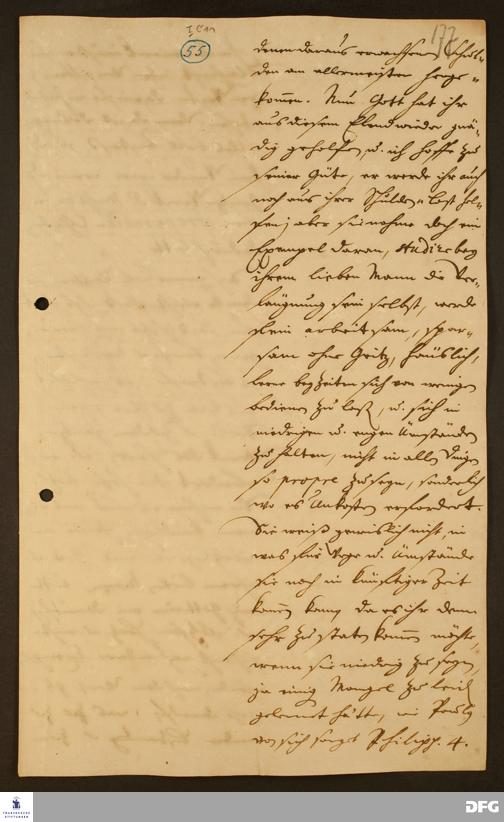 I C 11
177
55
denen daraus erwachsenen Schul-
den am allermeisten herge-
kommen. Nun Gott hat ihr
aus diesem Elend wieder gnä-
dig geholfen, u. ich hoffe zu
seiner Güte, er werde ihr auch
noch aus ihrer Schulden-Last hel-
fen; aber sie nehme doch ein
Exempel daran, studire bey
ihrem lieben Mann die Ver-
läugnung sein selbst, werde
fein arbeitsam, spar-
sam ohne Geitz, häuslich,
lerne bey Zeiten sich von wenigen
bedienen zu laßen, u. sich in
niedrigen u. engen Umständen
zu halten, nicht in allen Dingen
so propre zu seyn, sonderlich
wo es Unkosten erfordert.
Sie weiß gewislich nicht, in
was für Wege u. Umstände
sie noch in künftiger Zeit
kommen kann, da es ihr denn
sehr zu statten kommen möchte,
wenn sie niedrig zu seyn,
ja einig Mangel zu leiden
gelernet hätte, wie Paulus
von sich sagt Philipp. 4.
FRANCKESCHE
STIFTUNGEN
DFG